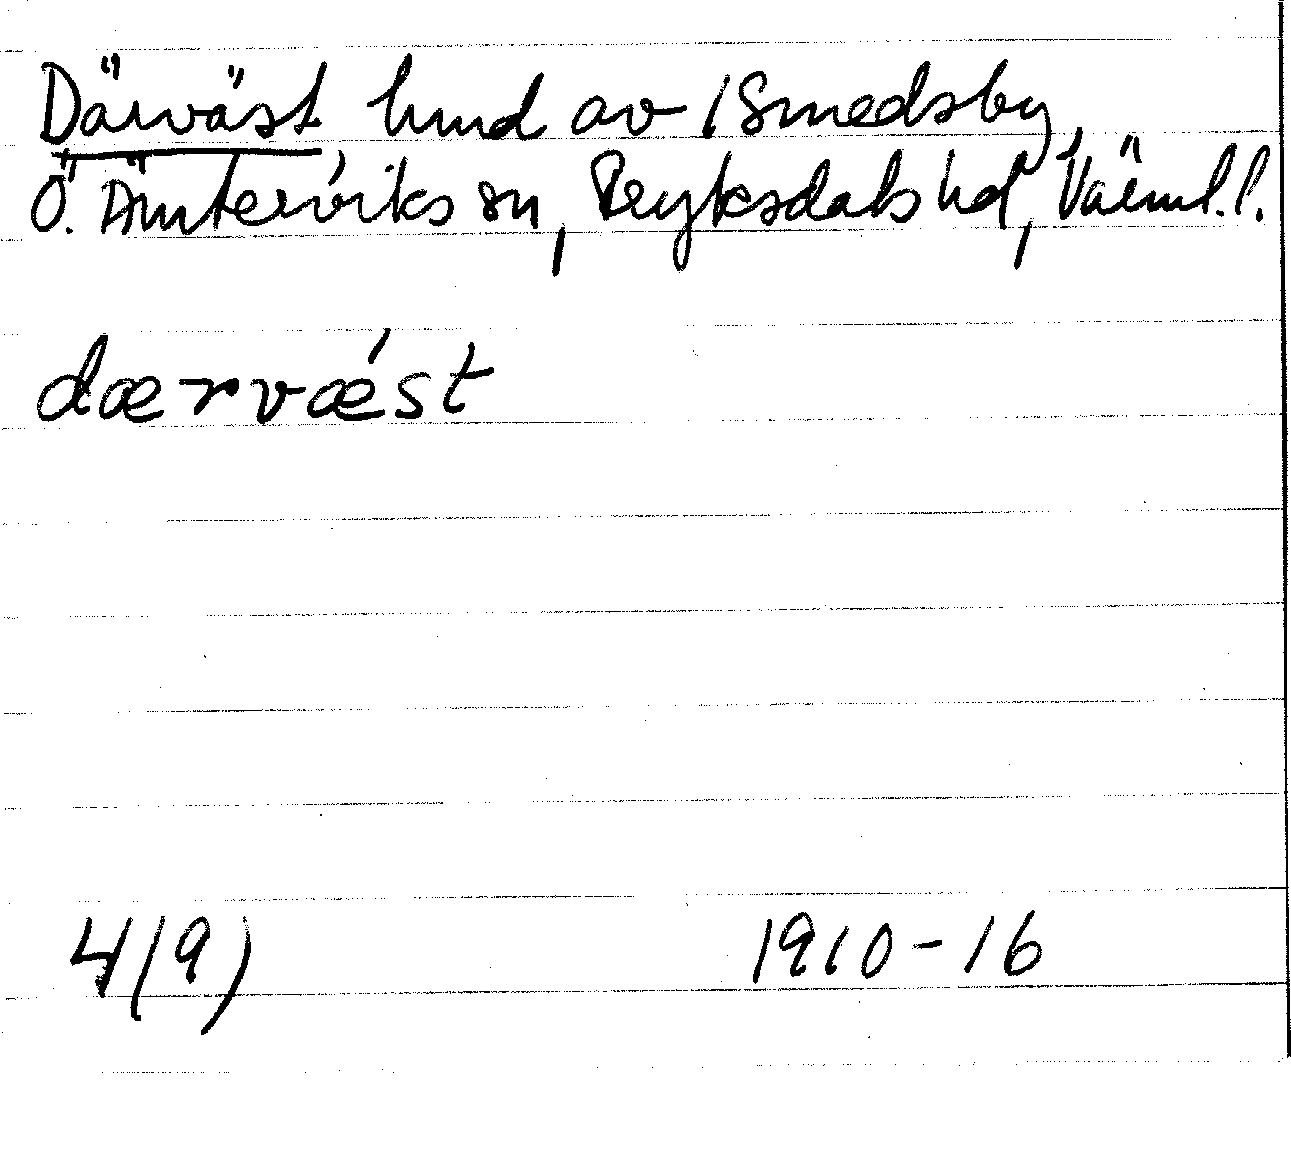 Därväst hmd av 1 Smedsby,
Ö. Ämterviks sn, Fryksdals hd, Värml. l.
dærvæ´st
4(9) 1910-16